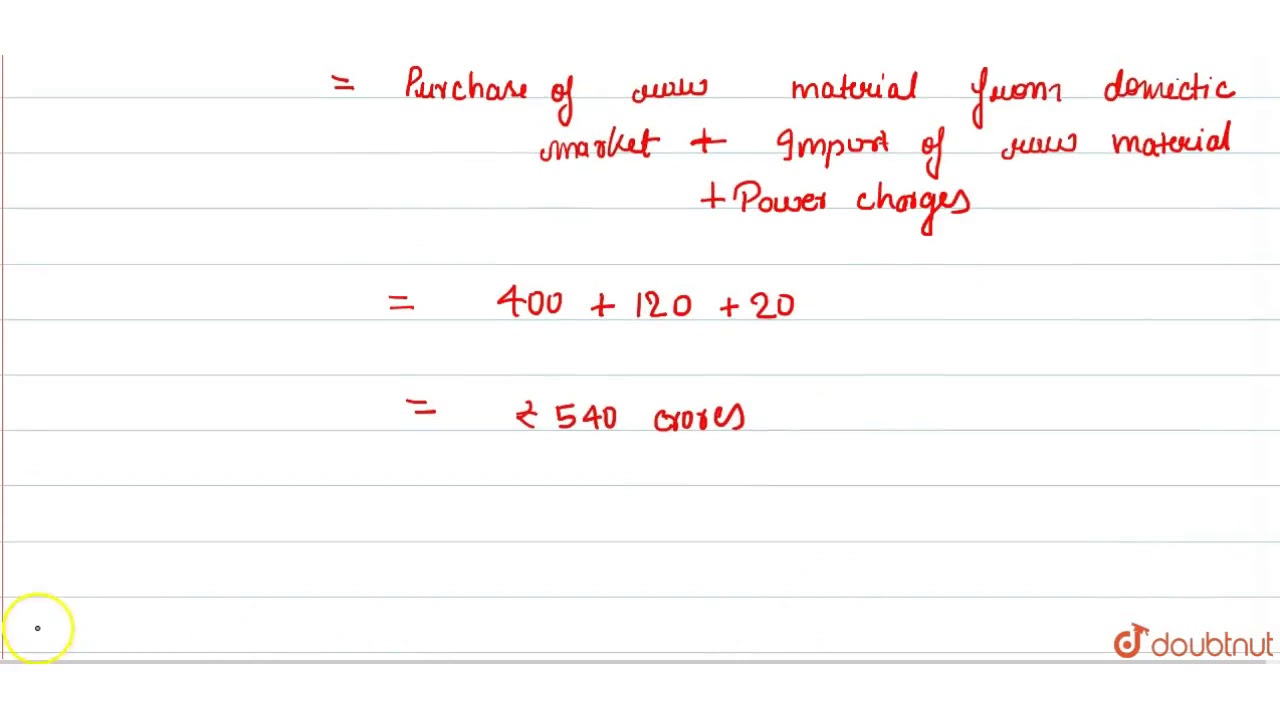 = Purchase of raw material from domestic
market + Import of raw material
+ Power charges
= 400 + 120 + 20
= ₹ 540 crores
doubtnut